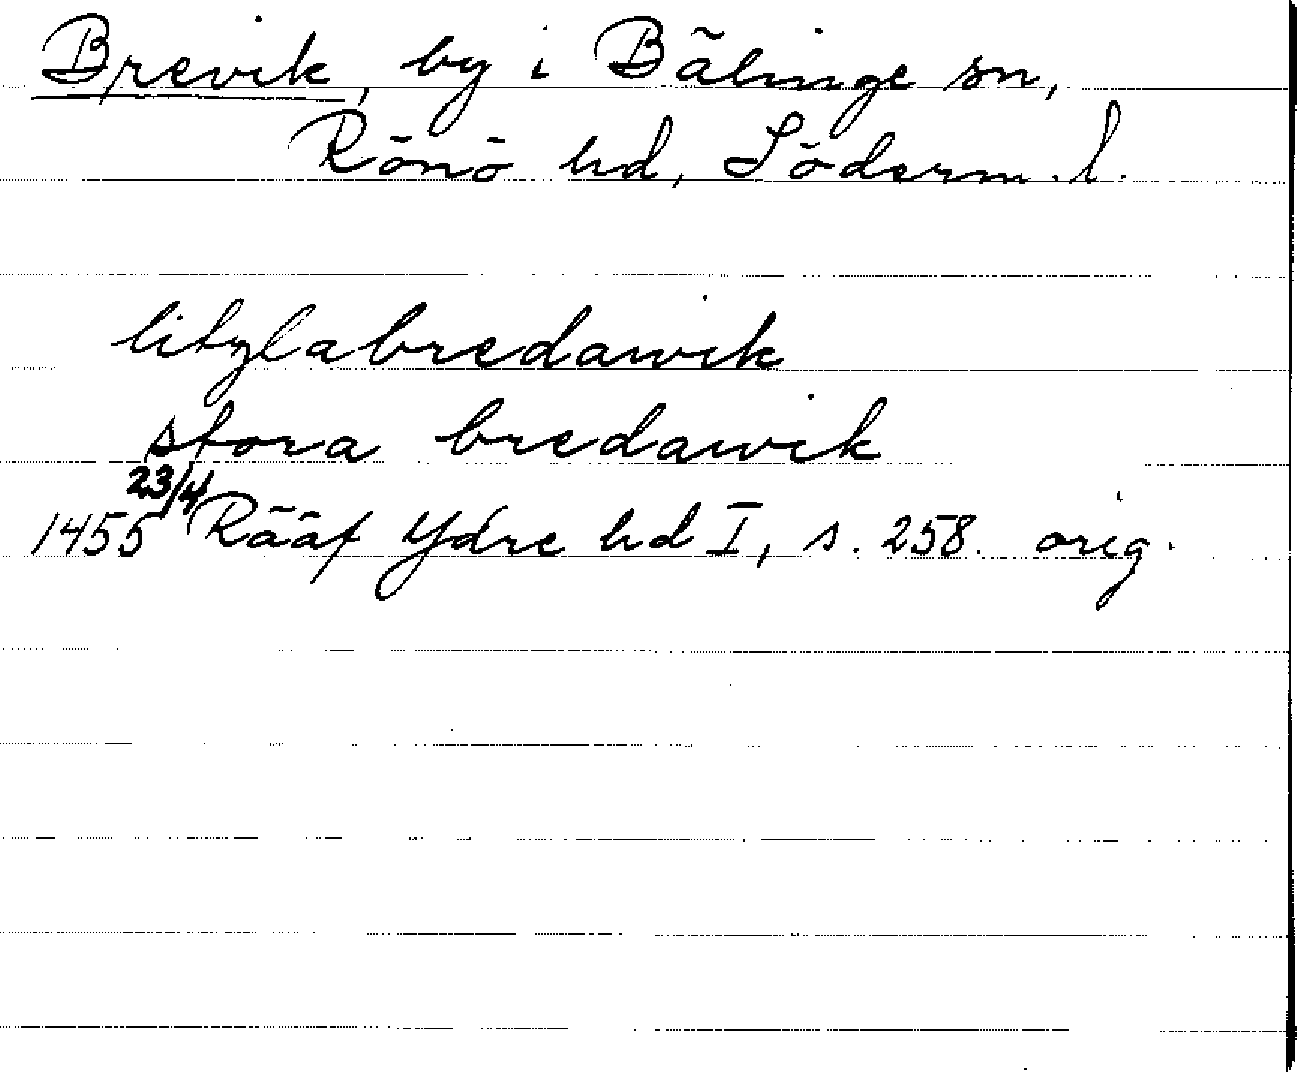 Brevik, by i Bälinge sn,
Rönö hd, Söderm. l.
litzlabredawik
stora bredawik
1455 23/4 Rääf Ydre hd I, s. 258. orig.